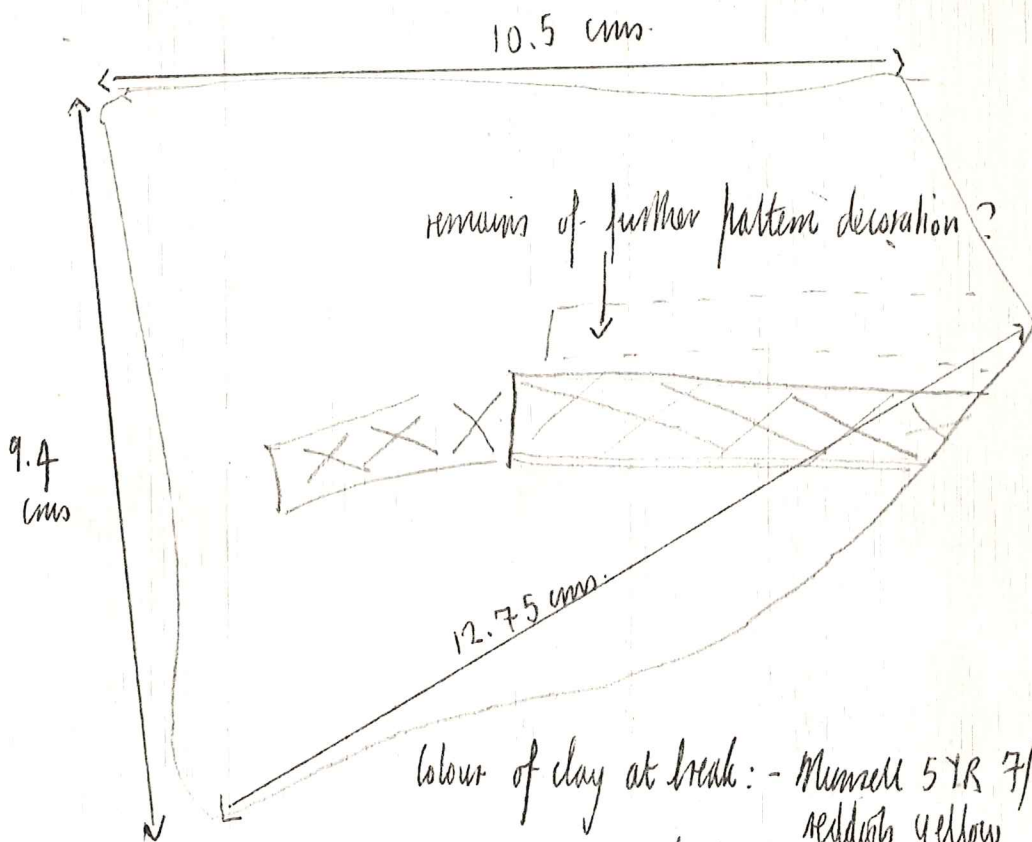 10.5 cms.
remains of further pattern decoration?
9.4
cms
12.75 cms.
Colour of clay at break: - Munsell 5 YR 7/
reddish yellow